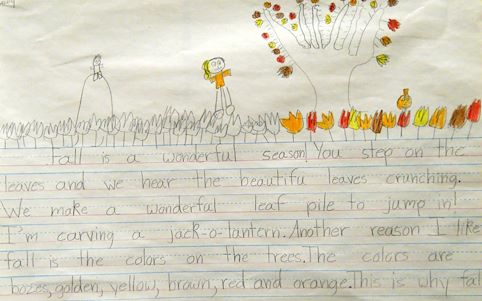 Fall is a wonderful season! You step on the
leaves and we hear the beautifu leaves crunching.
We make a wonderful leaf pile to jump in!
I'm carving a jack-o-lantern. Another reason I like
fall is the colors on the trees. The colors are
bozes, golden, yellow, brown, red and orange. This is why fal